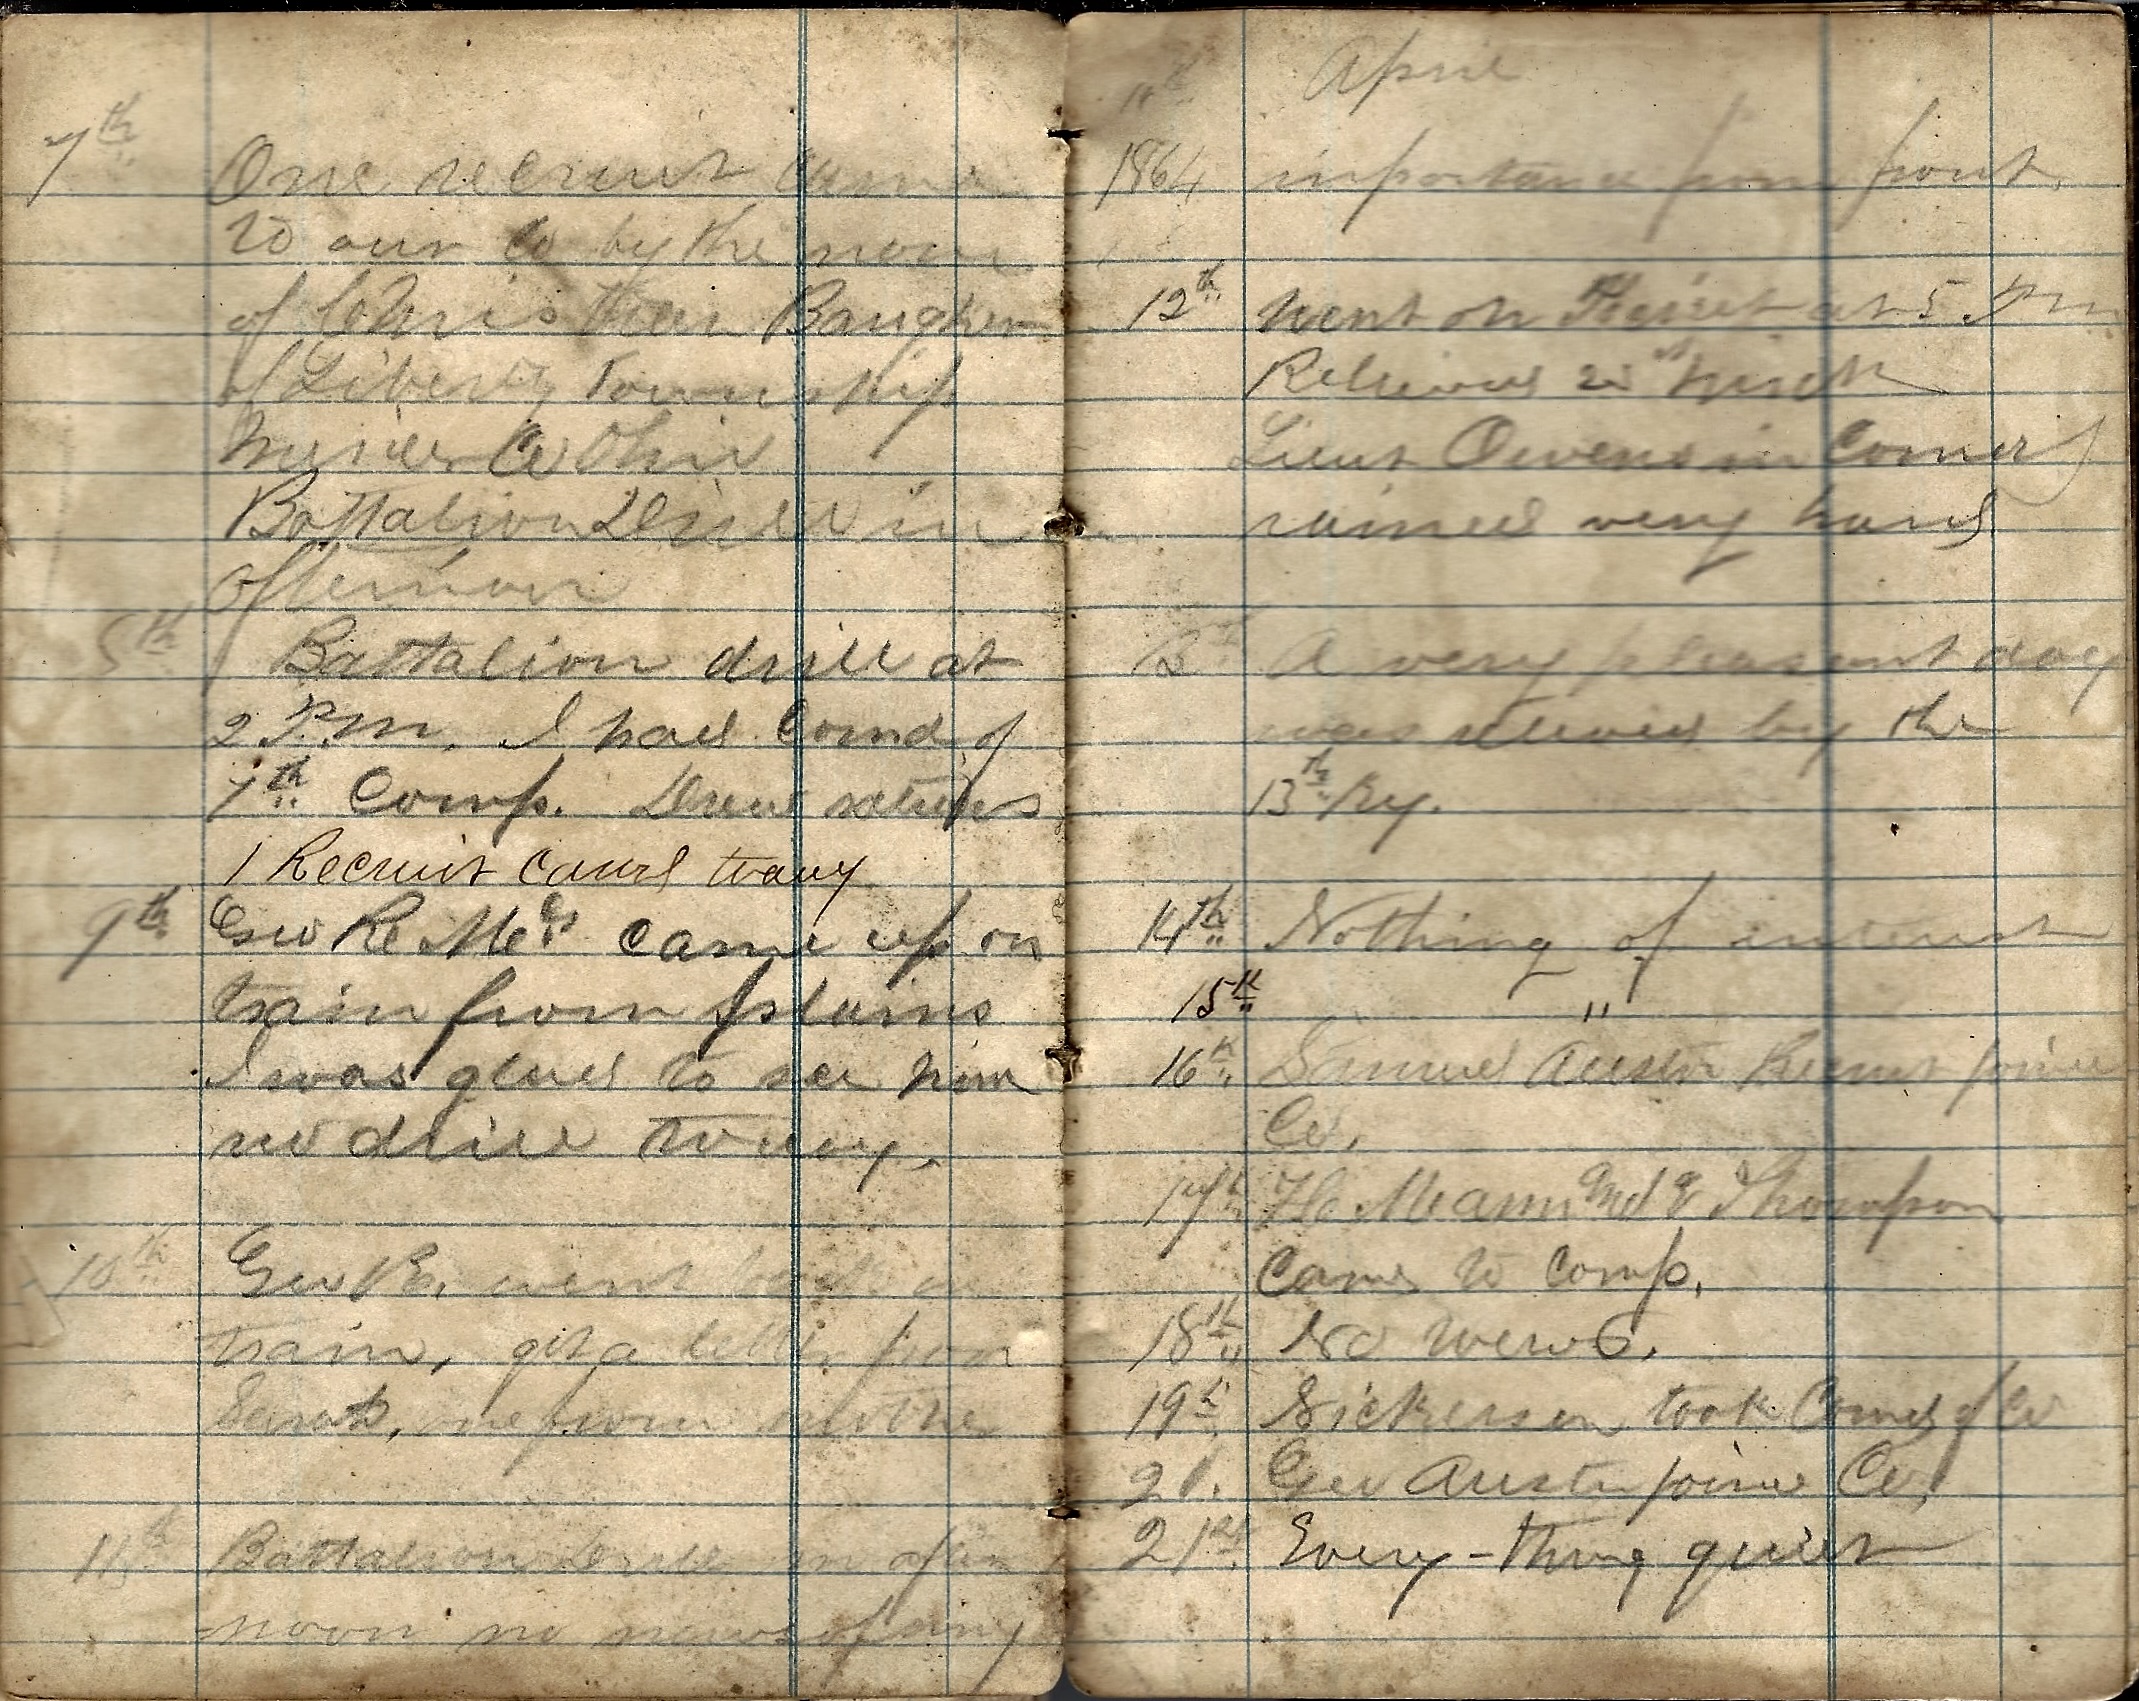 7th One recruit came
to our Co by the name
of Christian Baugher
of Liberty Township
Mercer Co Ohio
Battalion Drill in
afternoon
Battalion drill at
2 P.M. I had Comd of
7th Comp.
1 Recruit came today
9th Geo R Mc came up on
train from plains
I was glad to see him
no drill today.
10th Geo R. went back on
train, got a letter from
Sarah, one from mother
11th Battalion Drill in after
noon no news of any
11th April
1864 importance from front.
12th Went on Picket at 5 P.M.
Relieved
Lieut Owens in Comd
rained very hard
13th A very pleasant day
was relieved by the
13th Ky.
14th Nothing of interest
15th "
16th Samuel Austin Recruit joined
Co.
17th Thompson
Came to Comp.
18th No News.
19th Nickerson took Comd of Co
20. Geo Austin joined Co,
21st Every-thing quiet